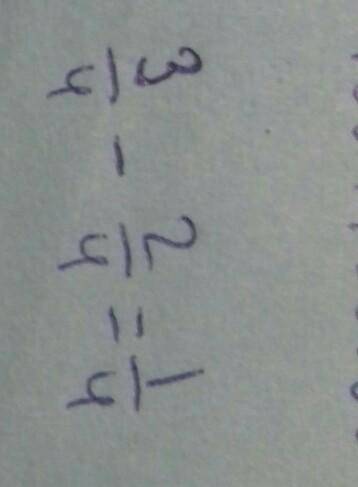 3/4 - 2/4 = 1/4